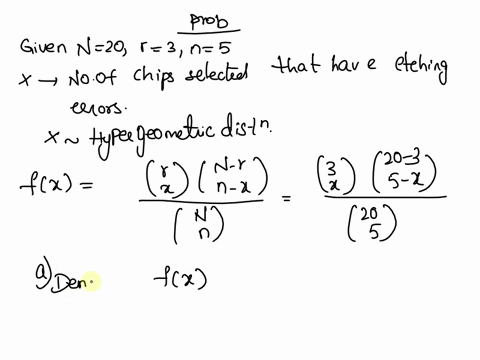 Prob
Given N=20, r=3, n=5
X → No. of chips selected that have etching
errors.
X ~ Hypergeometric distn.
f(x) = (r x) (N-r n-x) / (N n) = (3 x) (20-3 5-x) / (20 5)
a) Den. f(x)